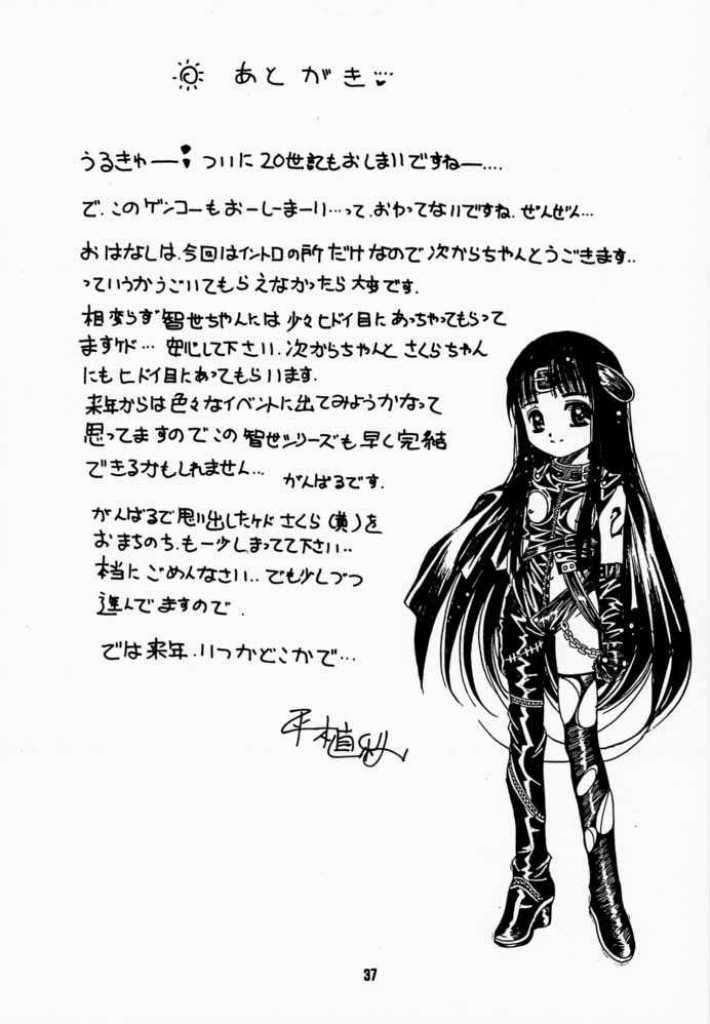 あとがき
うるきゅー ついに20世記もおしまいですねー....
で.このゲンコーもおーしーまーい…って.おわってないですね.ぜんぜん…
おはなしは、今回はイントロの所だけなので次からちゃんとうごきます..
っていうかうごいてもらえなかったら大変です.
相変らず智世ちゃんには少々ヒドイ目にあっちゃってもらって
ますケド… 安心して下さい.次からちゃんとさくらちゃん
にもヒドイ目にあってもらいます.
来年からは色々なイベントに出てみようかなって
思ってますのでこの智世シリーズも早く完結
できるかもしれません… がんばるです.
がんばるで思い出したケドさくら(黄)を
おまちのち.も一少しまってて下さい..
本当にごめんなさい..でも少しづつ
進んでますので.
では来年.いつかどこかで…
37